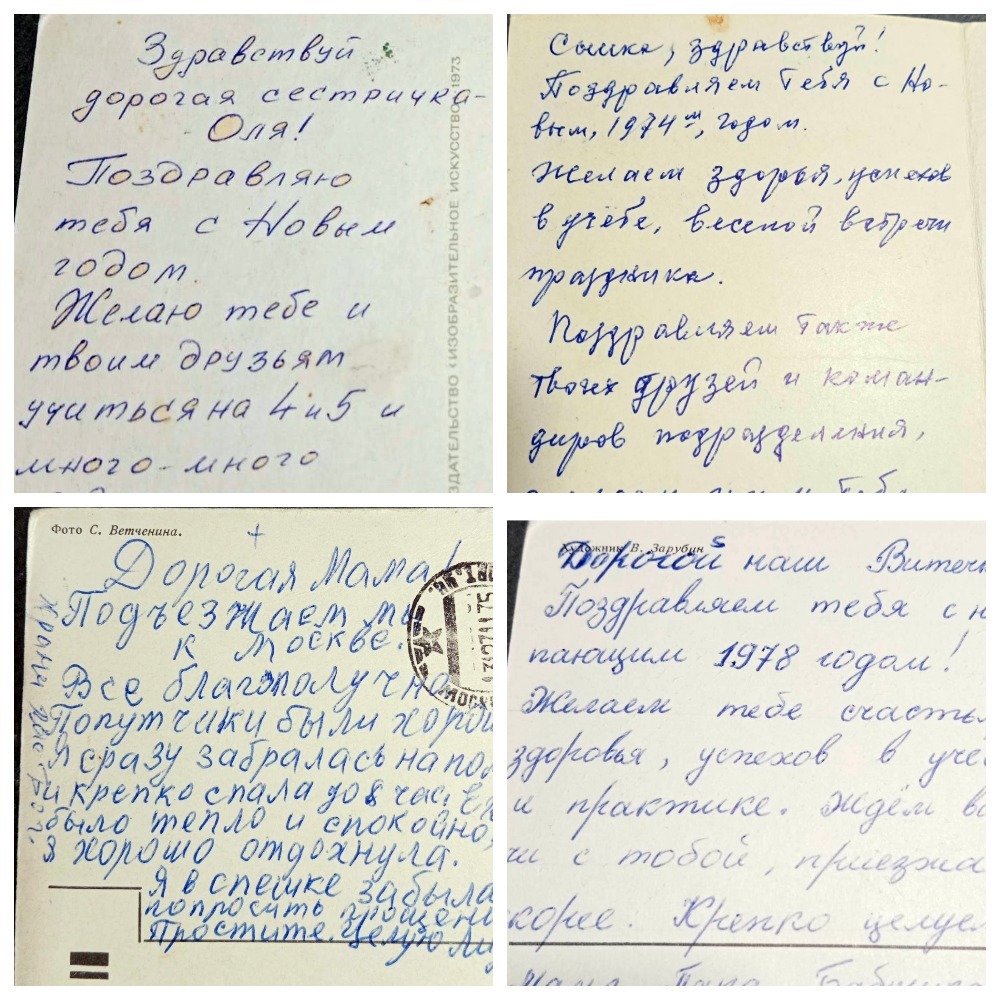 Здравствуй
дорогая сестричка-
Оля!
Поздравляю
тебя с Новым
годом.
Желаю тебе и
твоим друзьям
учиться на 4 и 5 и
много-много
ЗДАТЕЛЬСТВО «ИЗОБРАЗИТЕЛЬНОЕ ИСКУССТВО» 1973
здравствуй!
Поздравляем Тебя с Но-
вым, 1974 м, годом.
Желаем здоровья, успехов
в учёбе, веселой встречи
праздника.
Поздравляем также
твоих друзей и коман-
диров подразделения,
Фото С. Ветченина.
Дорогая Мама!
Подъезжаем мы
к Москве.
Все благополучно
Попутчики были хорош
Я сразу забралась на пол
и крепко спала до 8 час
было тепло и спокойно,
я хорошо отдохнула.
Я в спешке забыла
попросить прощени
Простите. Целую
Храни Вас Бог.
Художник В. Зарубин
Дорогой наш Витечк
Поздравляем тебя с н
пающим 1978 годом!
Желаем тебе счастья
здоровья, успехов в учё
и практике. Ждём вс
чи с тобой, приезжа
корее. Крепко целуем
Мама Папа Бабушка